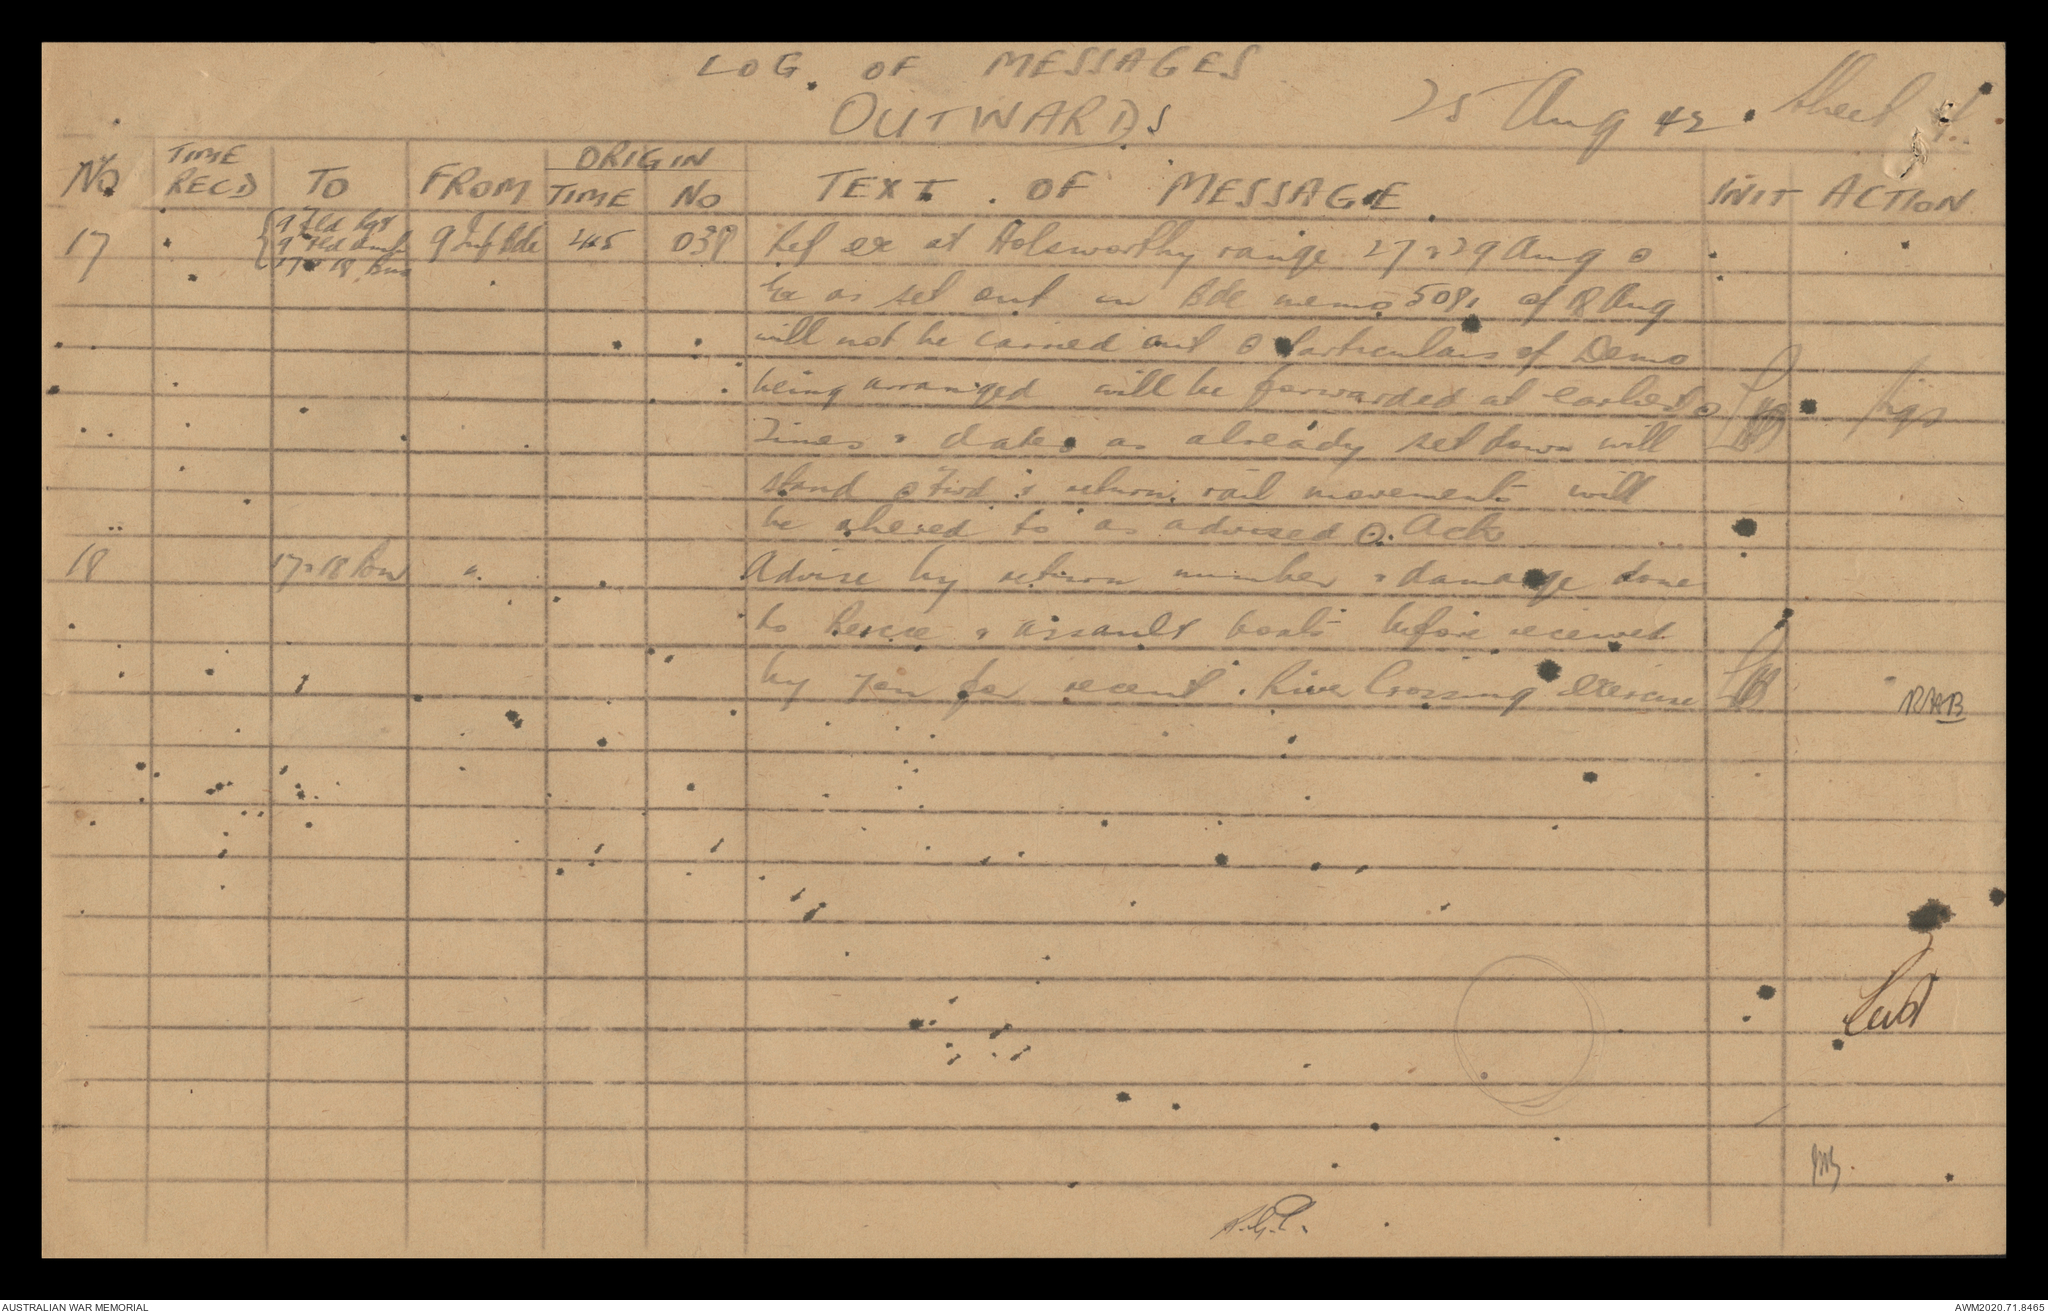 LOG OF MESSAGES
OUTWARDS
25 Aug 42. Sheet
No TIME REC'D TO FROM ORIGIN TIME No TEXT OF MESSAGE INIT ACTION
17 9 Fld Rgt 9 Fld Amb 17 & 18 Bns 9 Inf Bde 445 039 Ref ex at Holsworthy range 27 & 29 Aug o
Ex as set out in Bde memo 5081 of 18 Aug
will not be carried out o Particulars of Demo
being arranged will be forwarded at earliest o
Times & dates as already set down will
stand o Fwd & return rail movements will
be ahered to as advised o. Ack
18 17 & 18 Bns " Advise by return number & damage done
to & assault boats before received
by you for recent River Crossing Exercise
RAB
AUSTRALIAN WAR MEMORIAL
AWM2020.71.8465